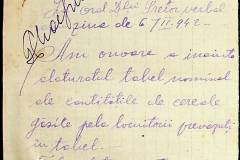 ord. Dlui Pretor verbal
ziua de 6/III. 942 -
Am onoare a inainta
alaturatul tabel nominal
de cantitatile de cereale
gasite pela locuitorii prevazuti
in tabel.